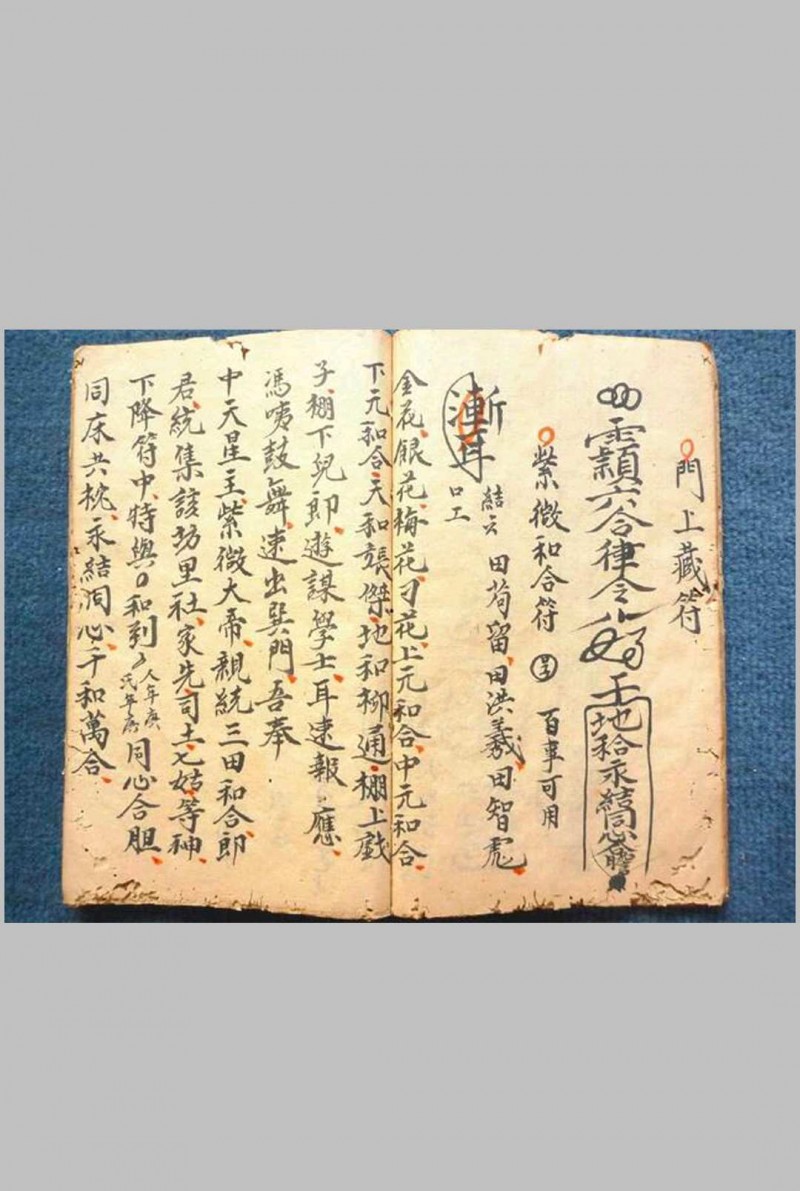 門上藏符
六合律令
地和永結同心
紫微和合符 百事可用
結云 田苟留田洪義田智彪
口工
金花銀花梅花刁花上元和合中元和合
下元和合天和張傑地和柳通棚上戲
子棚下兒郎遊謀學士耳速報應
馮夷鼓舞速出巽門吾奉
中天星主紫微大帝親統三田和合郎
君統集該坊里社家先司土七姑等神
下降符中特與 和到 人年庚 氏年庚 同心合胆
同床共枕永結同心千和萬合